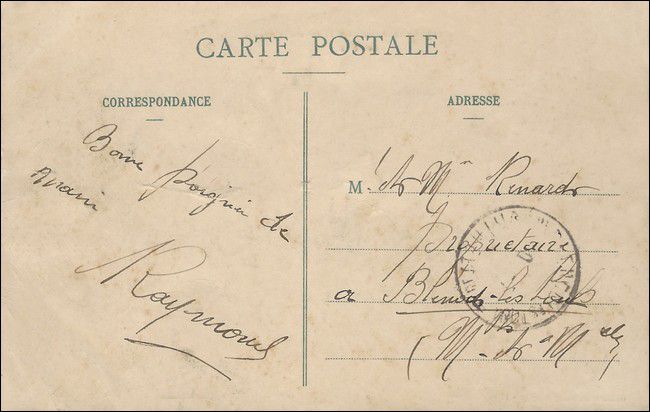 CARTE POSTALE
CORRESPONDANCE
Bonne poignée de
main
Raymond
ADRESSE
M. et Mme Renard
Propriétaire
a Blénod-les-Toul
(Mthe et Mlle)